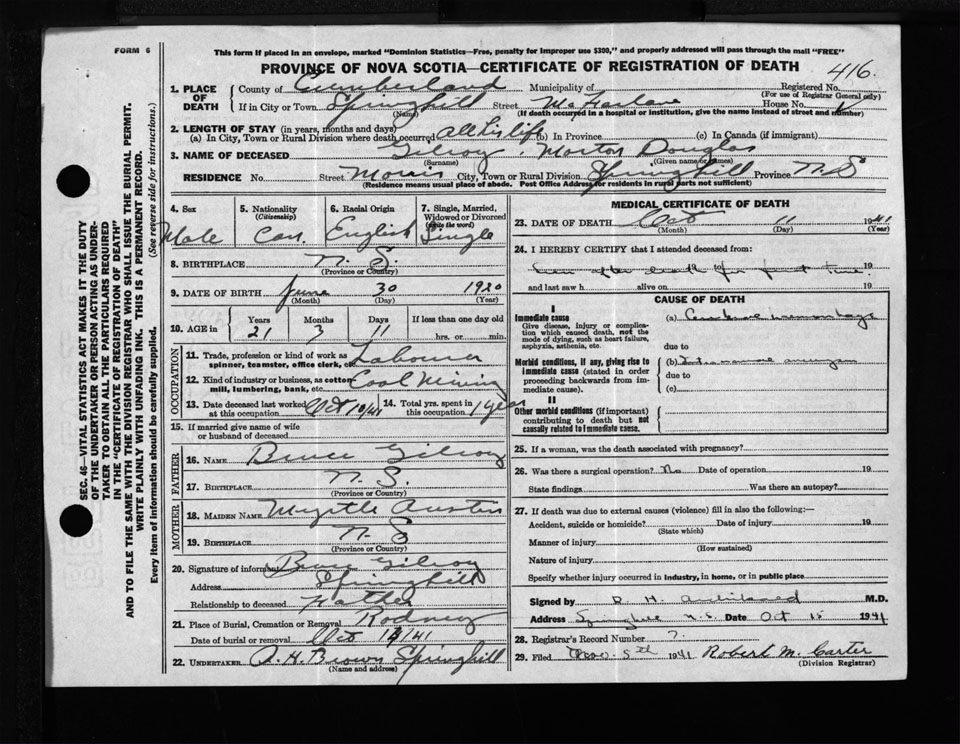 FORM 6
This form if placed in an envelope, marked "Dominion Statistics—Free, penalty for improper use $300," and properly addressed will pass through the mail "FREE"
PROVINCE OF NOVA SCOTIA—CERTIFICATE OF REGISTRATION OF DEATH
416.
1. PLACE OF DEATH
County of Cumberland Municipality of Registered No.
(For use of Registrar General only)
If in City or Town Springhill Street McFarlane House No.
(Name) (If death occurred in a hospital or institution, give the name instead of street and number)
2. LENGTH OF STAY (in years, months and days)
(a) In City, Town or Rural Division where death occurred all his life (b) In Province (c) In Canada (if immigrant)
3. NAME OF DECEASED Gilroy, Morton Douglas
(Surname) (Given name or names)
RESIDENCE No. Street Morris City, Town or Rural Division Springhill Province N.S.
(Residence means usual place of abode. Post Office Address for residents in rural parts not sufficient)
4. Sex Male
5. Nationality (Citizenship) Can.
6. Racial Origin English
7. Single, Married, Widowed or Divorced (write the word) Single
8. BIRTHPLACE N. S.
(Province or Country)
9. DATE OF BIRTH June 30 1920
(Month) (Day) (Year)
10. AGE in Years Months Days If less than one day old
21 3 11 hrs. or min.
OCCUPATION
11. Trade, profession or kind of work as spinner, teamster, office clerk, etc. Labourer
12. Kind of industry or business, as cotton mill, lumbering, bank, etc. Coal Mining
13. Date deceased last worked at this occupation Oct 10/41
14. Total yrs. spent in this occupation 1 year
15. If married give name of wife or husband of deceased
FATHER
16. NAME Bruce Gilroy
17. BIRTHPLACE N. S.
(Province or Country)
MOTHER
18. MAIDEN NAME Myrtle Austin
19. BIRTHPLACE N. S
(Province or Country)
20. Signature of informant Bruce Gilroy
Address Springhill
Relationship to deceased Father
21. Place of Burial, Cremation or Removal Rodney
Date of burial or removal Oct /41
22. UNDERTAKER A. H. Brown Springhill
(Name and address)
MEDICAL CERTIFICATE OF DEATH
23. DATE OF DEATH Oct 11 1941
(Month) (Day) (Year)
24. I HEREBY CERTIFY that I attended deceased from:
Seen after death for first time. 19
and last saw h alive on 19
CAUSE OF DEATH
I
Immediate cause
Give disease, injury or complication which caused death, not the mode of dying, such as heart failure, asphyxia, asthenia, etc.
(a) Cerebral
due to
Morbid conditions, if any, giving rise to immediate cause (stated in order proceeding backwards from immediate cause).
(b)
due to
(c)
II
Other morbid conditions (if important) contributing to death but not causally related to immediate cause.
25. If a woman, was the death associated with pregnancy?
26. Was there a surgical operation? No Date of operation 19
State findings Was there an autopsy?
27. If death was due to external causes (violence) fill in also the following:—
Accident, suicide or homicide? Date of injury 19
(State which)
Manner of injury
(How sustained)
Nature of injury
Specify whether injury occurred in industry, in home, or in public place
Signed by M.D.
Address Springhill N.S. Date Oct 15 1941
28. Registrar's Record Number 7.
29. Filed 5th 1941 Robert M. Carter
(Division Registrar)
SEC. 46—VITAL STATISTICS ACT MAKES IT THE DUTY
OF THE UNDERTAKER OR PERSON ACTING AS UNDER-
TAKER TO OBTAIN ALL THE PARTICULARS REQUIRED
IN THE "CERTIFICATE OF REGISTRATION OF DEATH"
AND TO FILE THE SAME WITH THE DIVISION REGISTRAR WHO SHALL ISSUE THE BURIAL PERMIT.
WRITE PLAINLY WITH UNFADING INK. THIS IS A PERMANENT RECORD.
Every item of information should be carefully supplied. (See reverse side for instructions.)